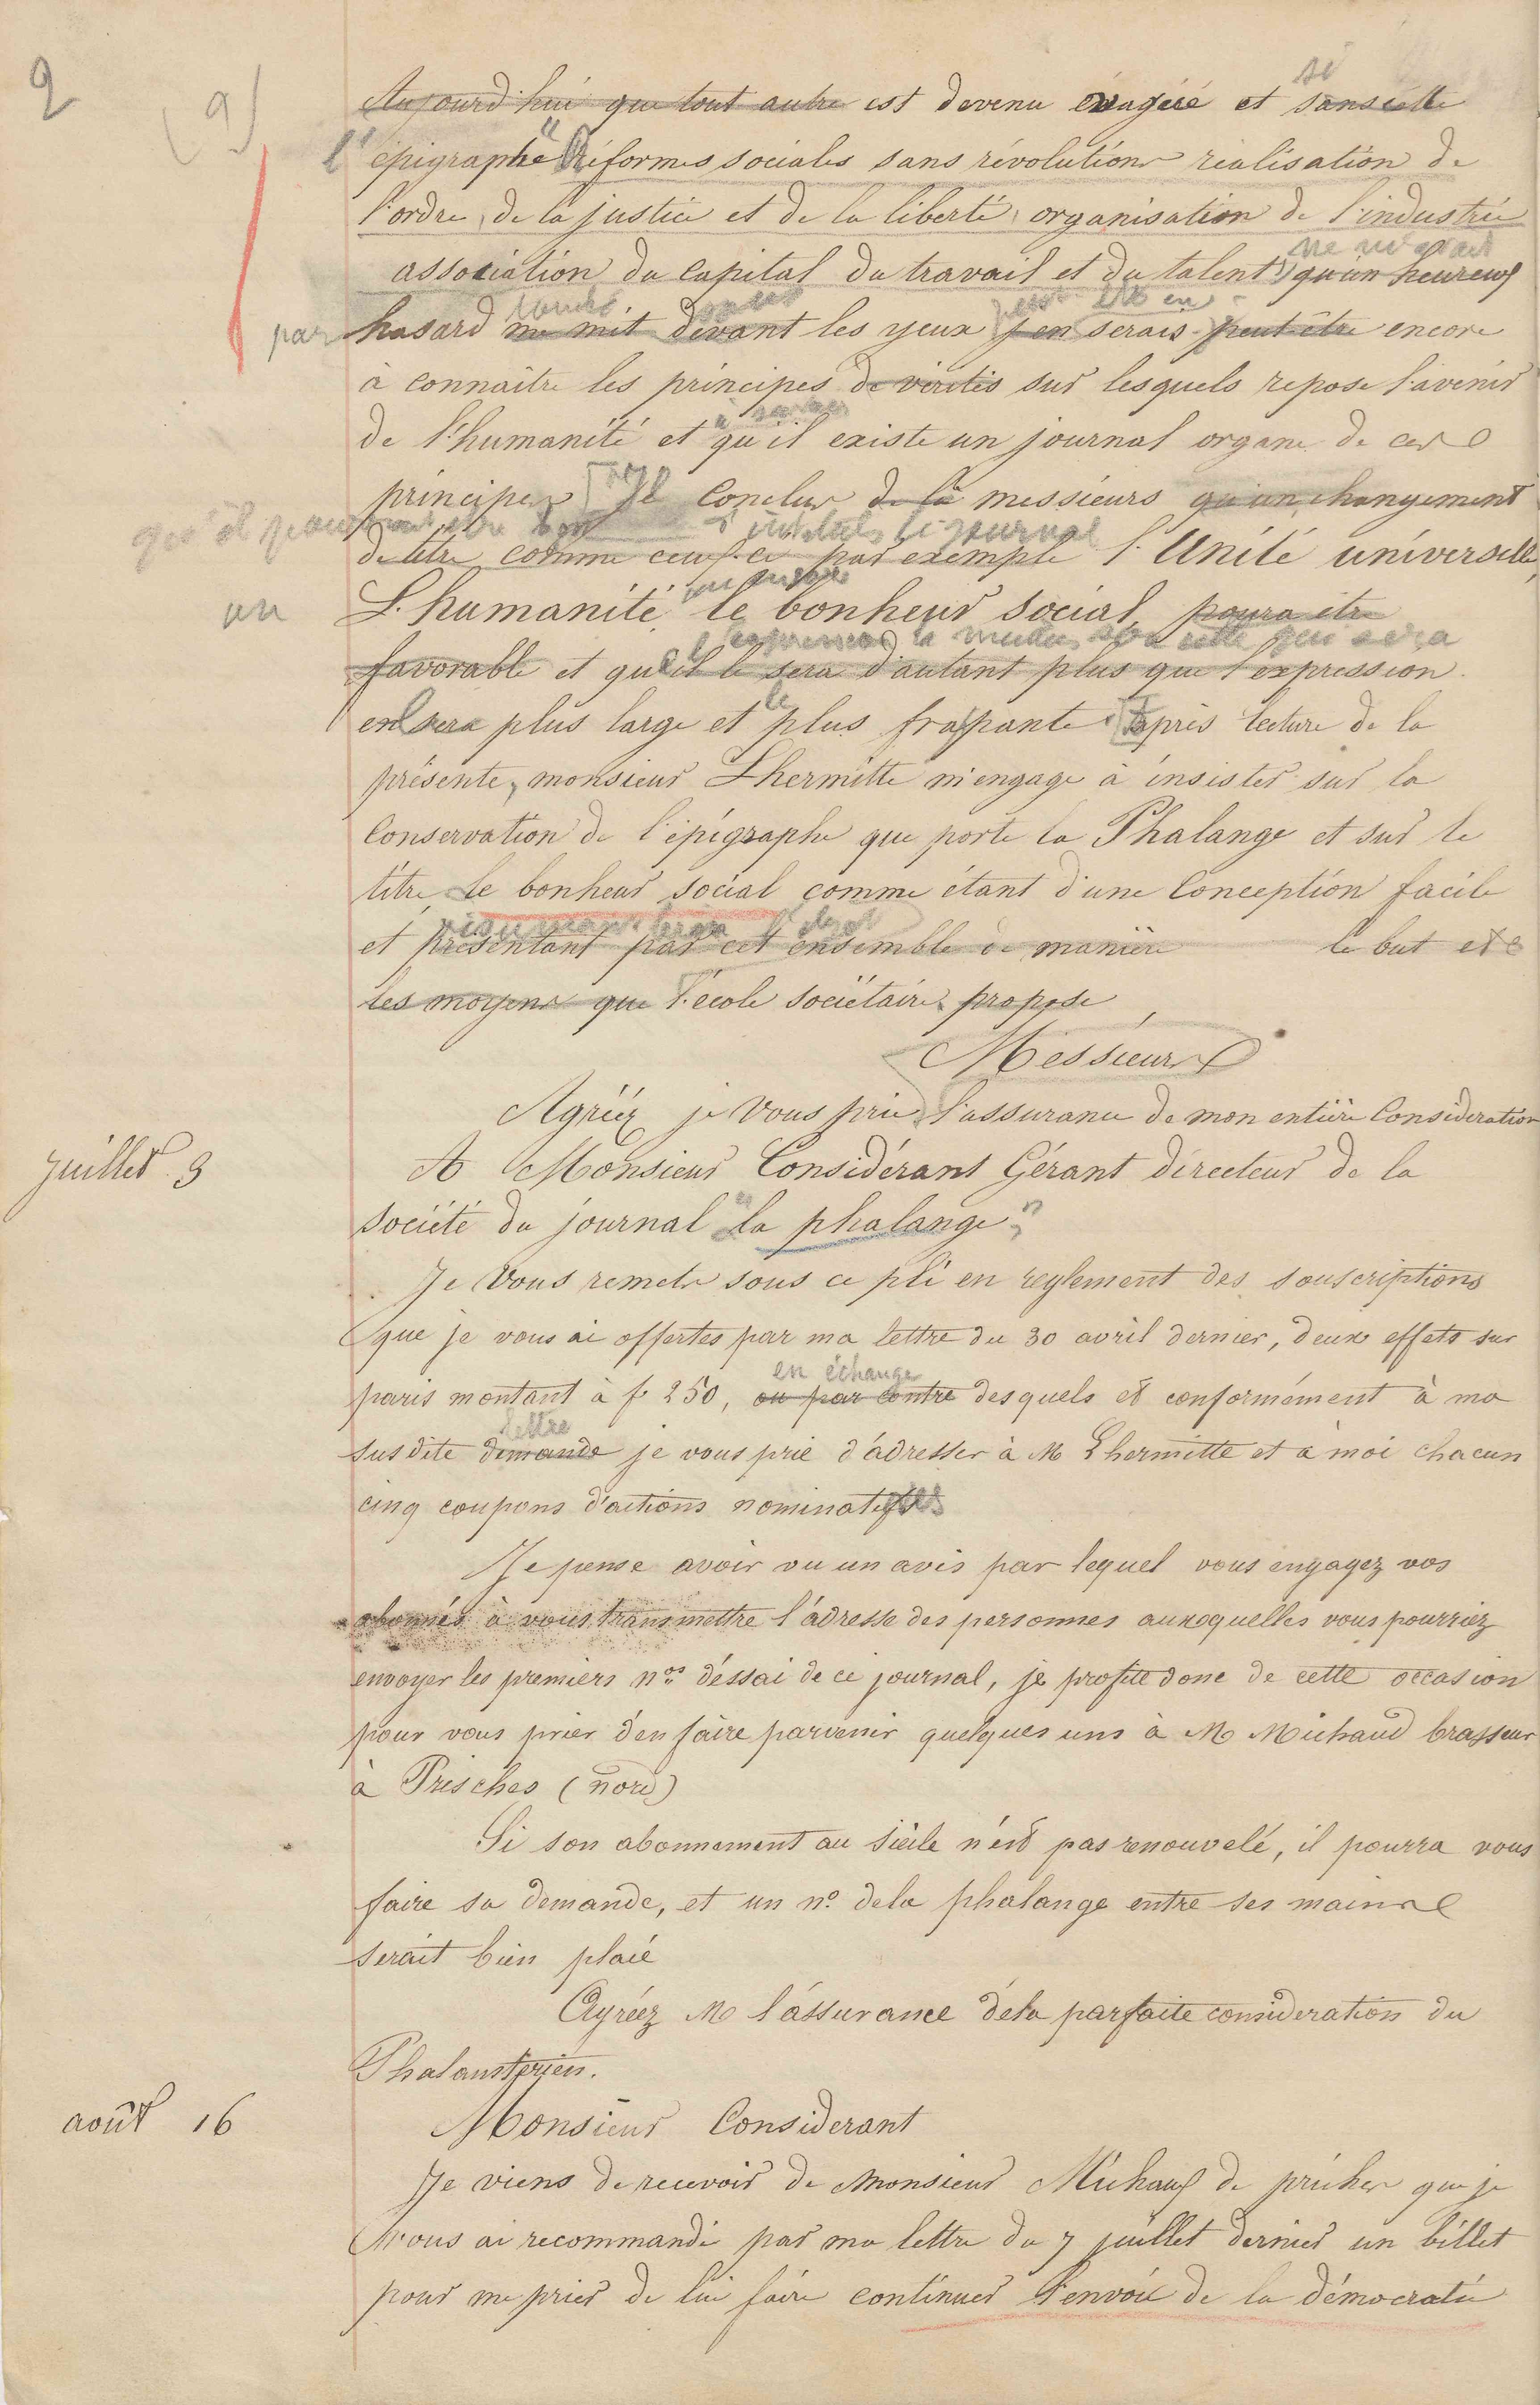 2
(9)
si
Aujourd'hui que tout autre est devenu exagéré et sans cette
l'épigraphe "Réformes sociales sans révolutions réalisation de
l'ordre, de la justice et de la liberté, organisation de l'industrie
ne m'était
association du Capital du travail et du talent" qu'un heureux
tombé sous
par hasard me mit devant les yeux j'en serais peut-être encore
à connaitre les principes de vérités sur lesquels repose l'avenir
de l'humanité et qu'il existe un journal organe de ces
principes Je Conclus de là messieurs qu'un changement
qu'il
de titre comme ceux-ci par exemple l'Unité universelle,
ou L'humanité le bonheur social, poura être
favorable et qu'il le sera d'autant plus que l'expression
le
en sera plus large et plus frapante. après lecture de la
présente, monsieur Lhermitte m'engage à insister sur la
Conservation de l'épigraphe que porte la Phalange et sur le
titre, le bonheur social comme étant d'une Conception facile
et présentant par cet ensemble de manière le but et
les moyens que l'école sociétaire propose,
Messieurs
Agréez je vous prie l'assurance de mon entière Consideration
juillet 9
A Monsieur Considérant Gérant directeur de la
société du journal "la phalange"
Je Vous remets sous ce pli en reglement des souscriptions
que je vous ai offertes par ma lettre du 30 avril dernier, deux effets sur
en échange
paris montant à f. 250, ou par contre desquels et conformément à ma
lettre
susdite demande je vous prie d'adresser à M Lhermitte et à moi chacun
cinq coupons d'actions nominatifs
Je pense avoir vu un avis par lequel vous engagez vos
abonnés à vous transmettre l'adresse des personnes auxquelles vous pourriez
envoyer les premiers nos d'éssai de ce journal, je profite donc de cette occasion
pour vous prier d'en faire parvenir quelques uns à M Michaud brasseur
à Prisches (nord)
Si son abonnement au siècle n'est pas renouvelé, il pourra vous
faire sa demande, et un no. dela phalange entre ses mains
serait bien placé
Agréez M l'assurance dela parfaite consideration du
Phalansterien.
août 16
Monsieur Considerant
Je viens de recevoir de Monsieur Michaux de priches que je
vous ai recommandé par ma lettre du 7 juillet dernier un billet
pour me prier de lui faire continuer l'envoie de la démocratie